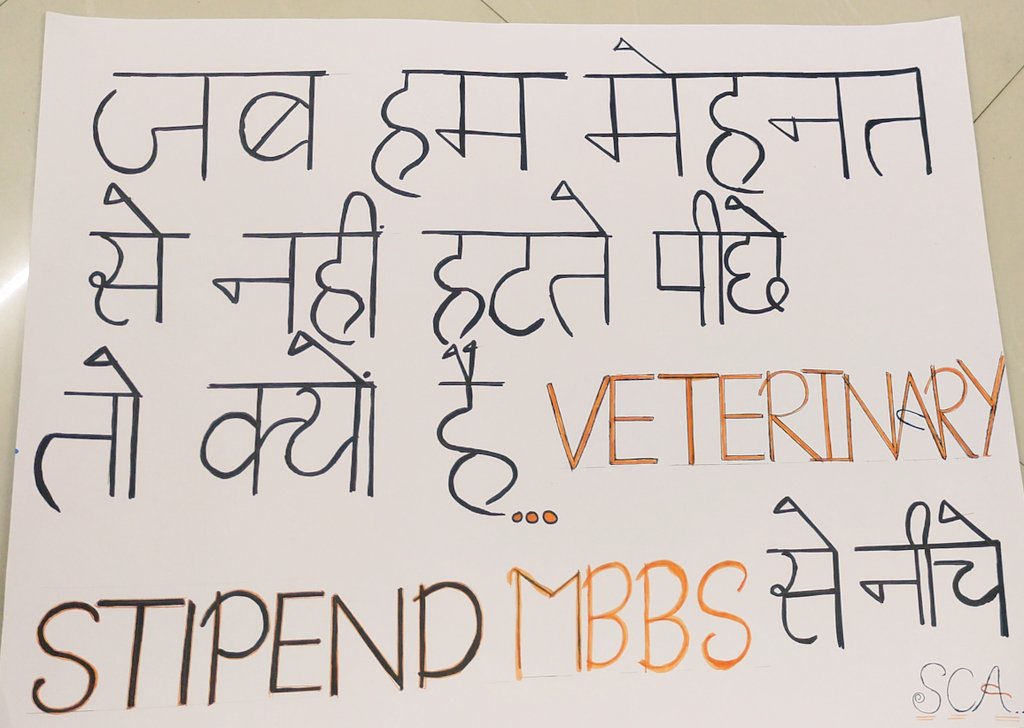 जब हम मेहनत
से नही हटते पीछे
तो क्यों है... VETERINARY
STIPEND MBBS से नीचे
SCA...